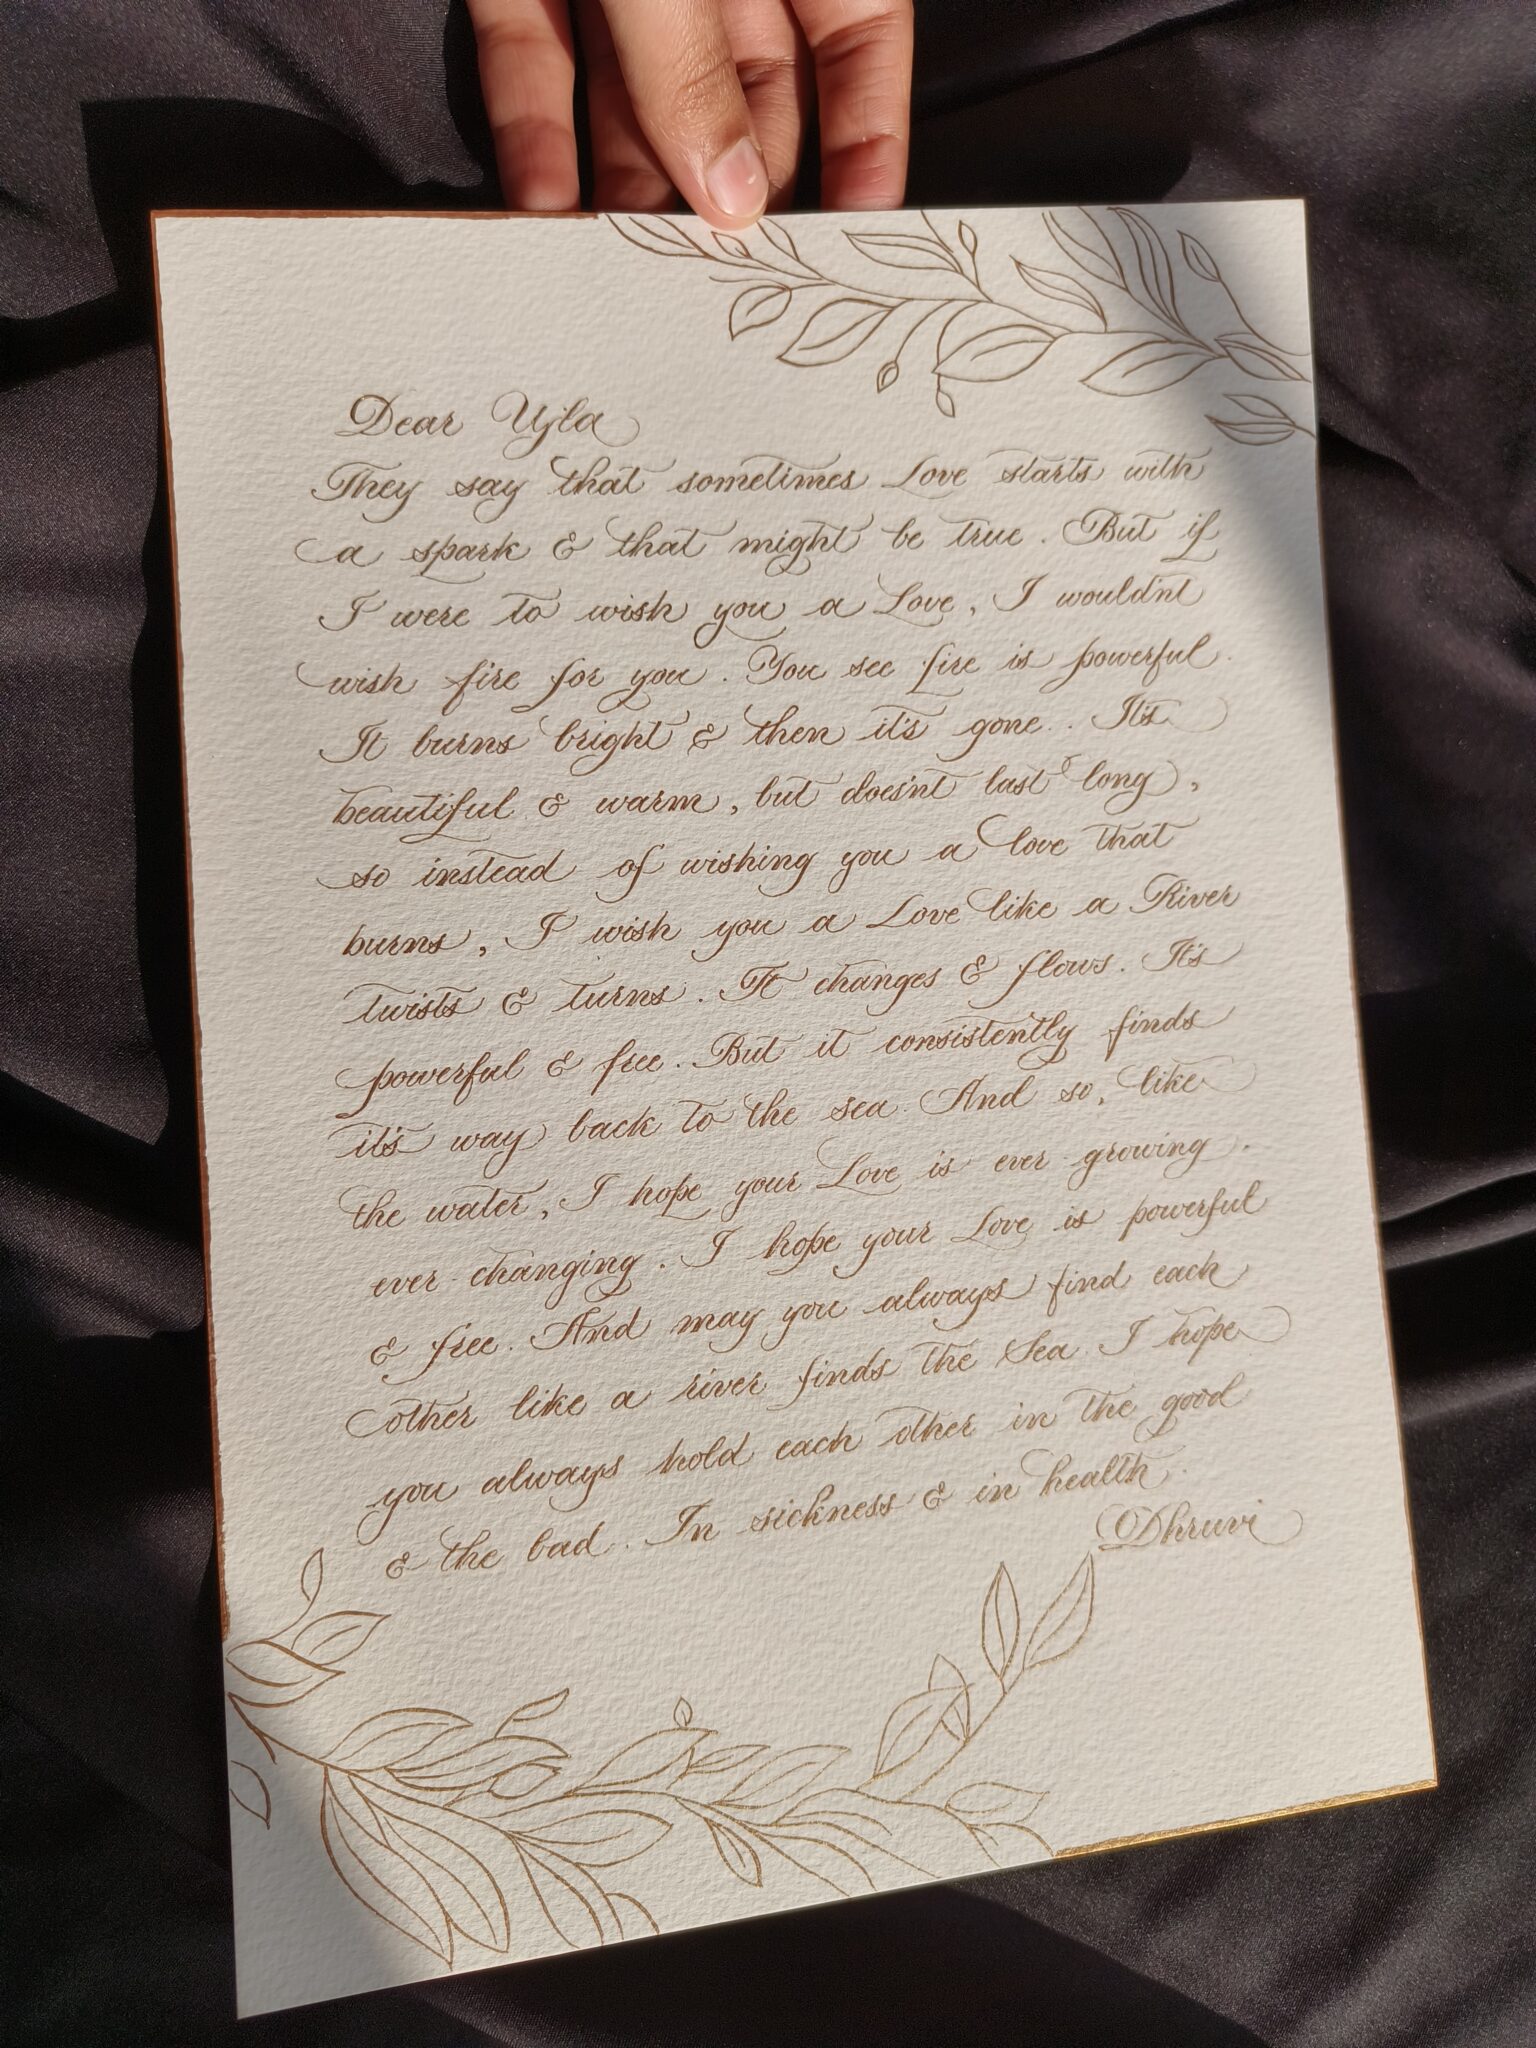 Dear Ujla
They say that sometimes Love starts with
a spark & that might be true. But if
I were to wish you a Love, I wouldn't
wish fire for you. You see fire is powerful.
It burns bright & then it's gone.. It's
beautiful & warm, but doesn't last long,
so instead of wishing you a love that
burns, I wish you a Love like a River
twists & turns. It changes & flows. It's
powerful & free. But it consistently finds
it's way back to the sea. And so, like
the water, I hope your Love is ever-growing.
ever-changing. I hope your Love is powerful
& free. And may you always find each
other like a river finds the Sea. I hope
you always hold each other in the good
& the bad. In sickness & in health.
Dhruvi